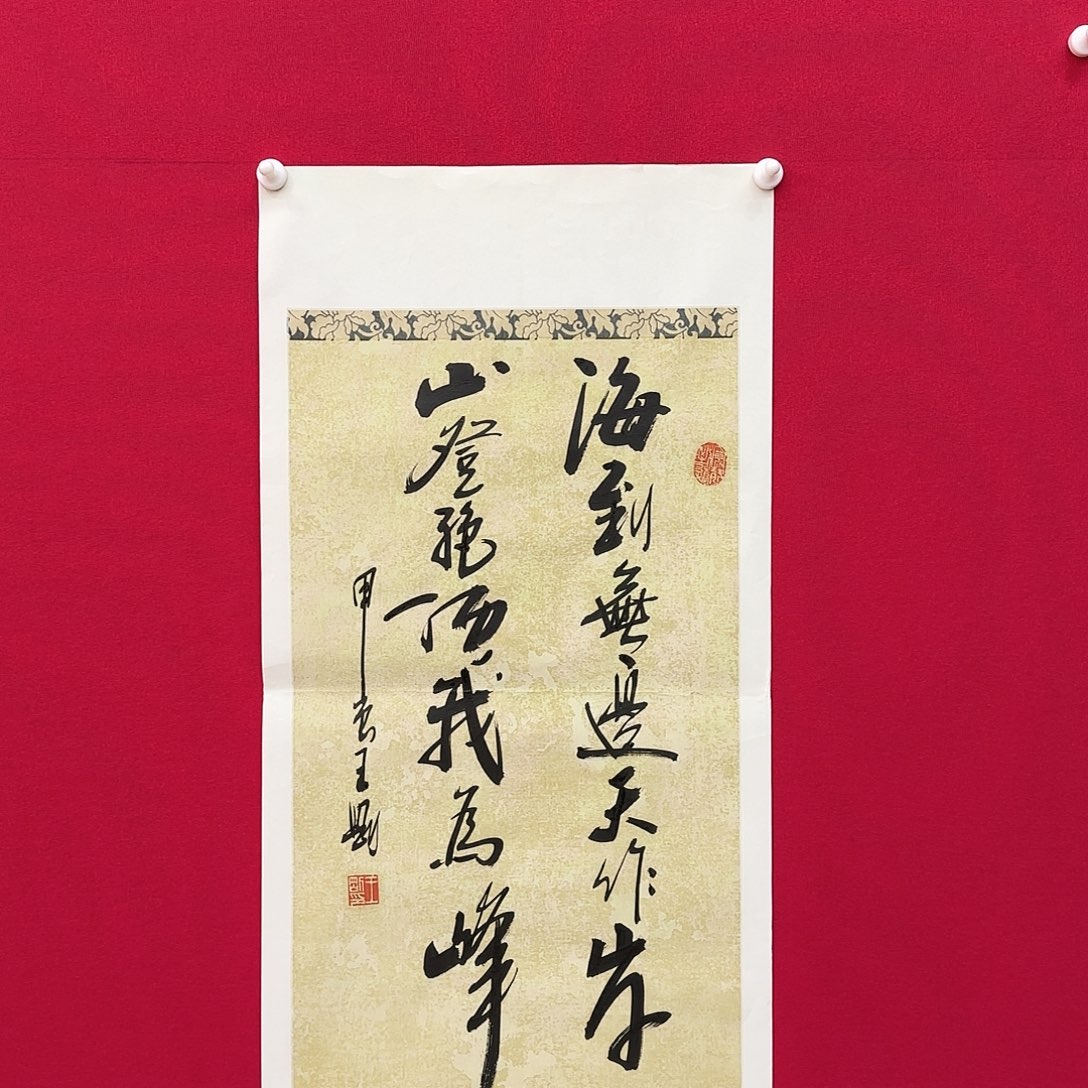 海到無邊天作岸
山登絕頂我為峰
甲 王